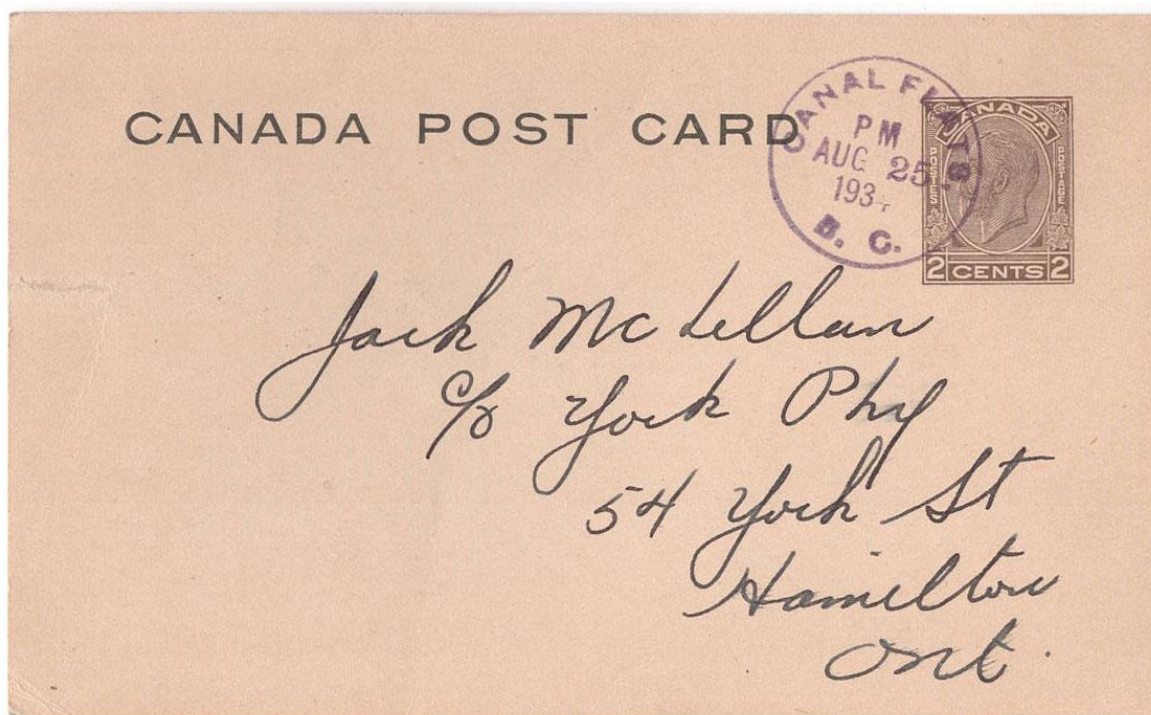 CANADA POST CARD
CANAL FLATS
PM
AUG 25
1934
B. C.
CANADA
POSTES POSTAGE
2 CENTS 2
Jack McLellan
c/o York Phy
54 York St
Hamilton
Ont.